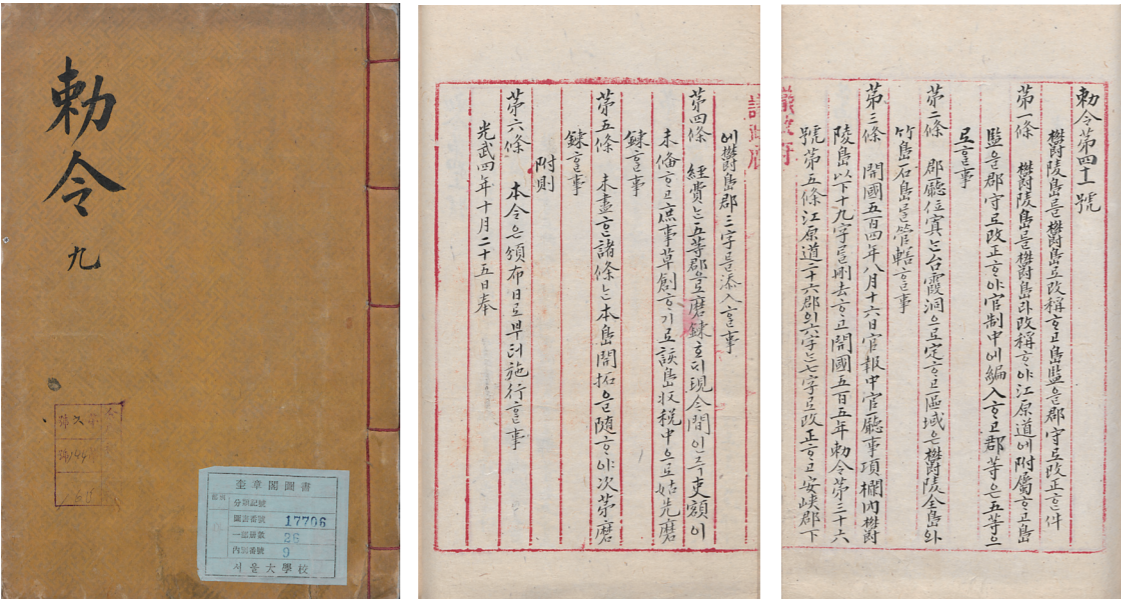 勅令 九
奎章閣圖書
分類記號
圖書番號 17706
一部冊數 26
內冊番號 9
서울大學校
勅令第四十一號
欝陵島를欝島로改稱ᄒᆞ고島監을郡守로改正ᄒᆞᆫ件
第一條 欝陵島를欝島라改稱ᄒᆞ야江原道에附屬ᄒᆞ고島
監을郡守로改正ᄒᆞ야官制中에編入ᄒᆞ고郡等은五等으
로ᄒᆞᆯ事
第二條 郡廳位寘ᄂᆞᆫ台霞洞으로定ᄒᆞ고區域은欝陵全島와
竹島石島ᄅᆞᆯ管轄ᄒᆞᆯ事
第三條 開國五百四年八月十六日官報中官廳事項欄內欝
陵島以下十九字를刪去ᄒᆞ고開國五百五年勅令第三十六
號第五條江原道二十六郡의六字ᄂᆞᆫ七字로改正ᄒᆞ고安峽郡下
議政府
에欝島郡三字를添入ᄒᆞᆯ事
第四條 經費ᄂᆞᆫ五等郡으로磨鍊호ᄃᆡ現今間인즉吏額이
未備ᄒᆞ고庶事草創ᄒᆞ기로該島收稅中으로姑先磨
鍊ᄒᆞᆯ事
第五條 未盡ᄒᆞᆫ諸條ᄂᆞᆫ本島開拓을隨ᄒᆞ야次第磨
鍊ᄒᆞᆯ事
附則
第六條 本令은頒布日로부터施行ᄒᆞᆯ事
光武四年十月二十五日奉